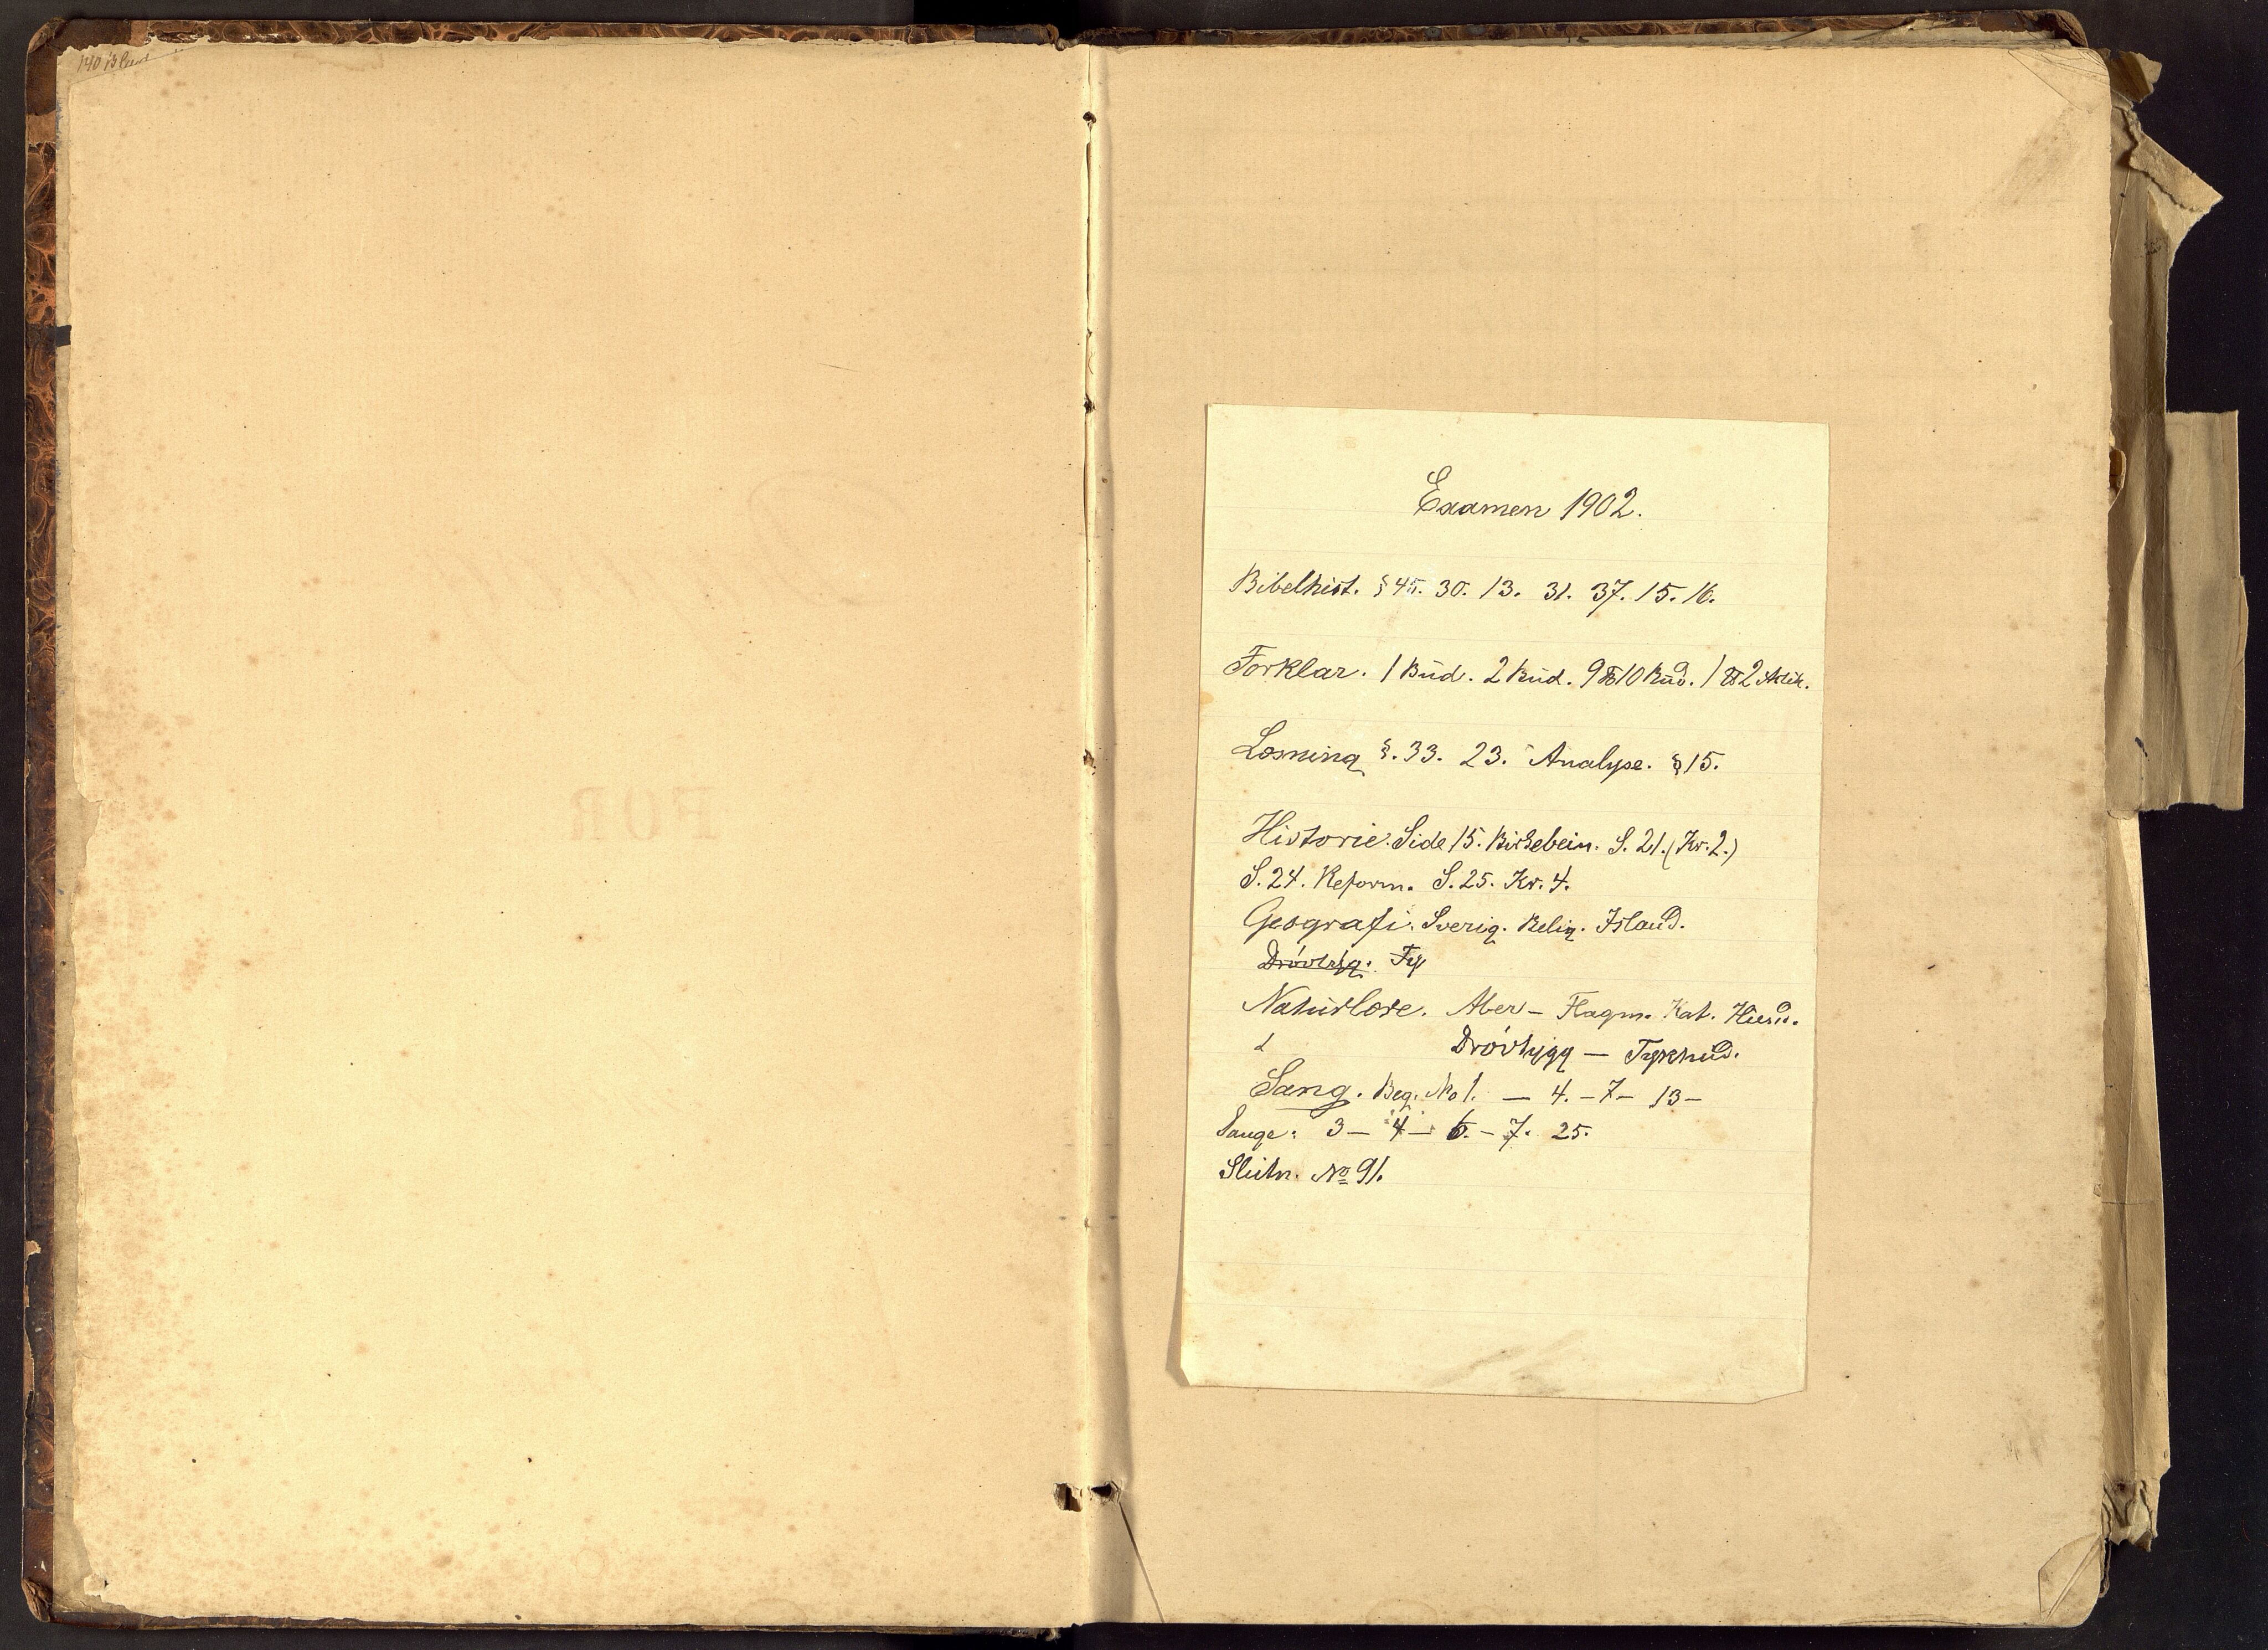 140 Blad
Examen 1902.
Bibelhist. § 45. 30. 13. 31. 37. 15. 16.
Forklar. 1 Bud. 2 Bud. 9 & 10 Bud. 1 & 2 Artik.
Læsning §. 33. 23. Analyse. § 15.
Historie. Side 15. Birkebein. S. 21. (Kr. 2.)
S. 24. Reform. S. 25. Kr. 4.
Geografi. Sverig. Belig. Island.
Drövtygg. Ty
Naturlære. Aber – Flagm. Kat. Hund.
Drövtygg — Tykhud.
Sang. Beg. No 1. — 4. – 7 – 13 –
Sange: 3 – 4 – 6. – 7. 25.
Slutn. No 91.
FOR